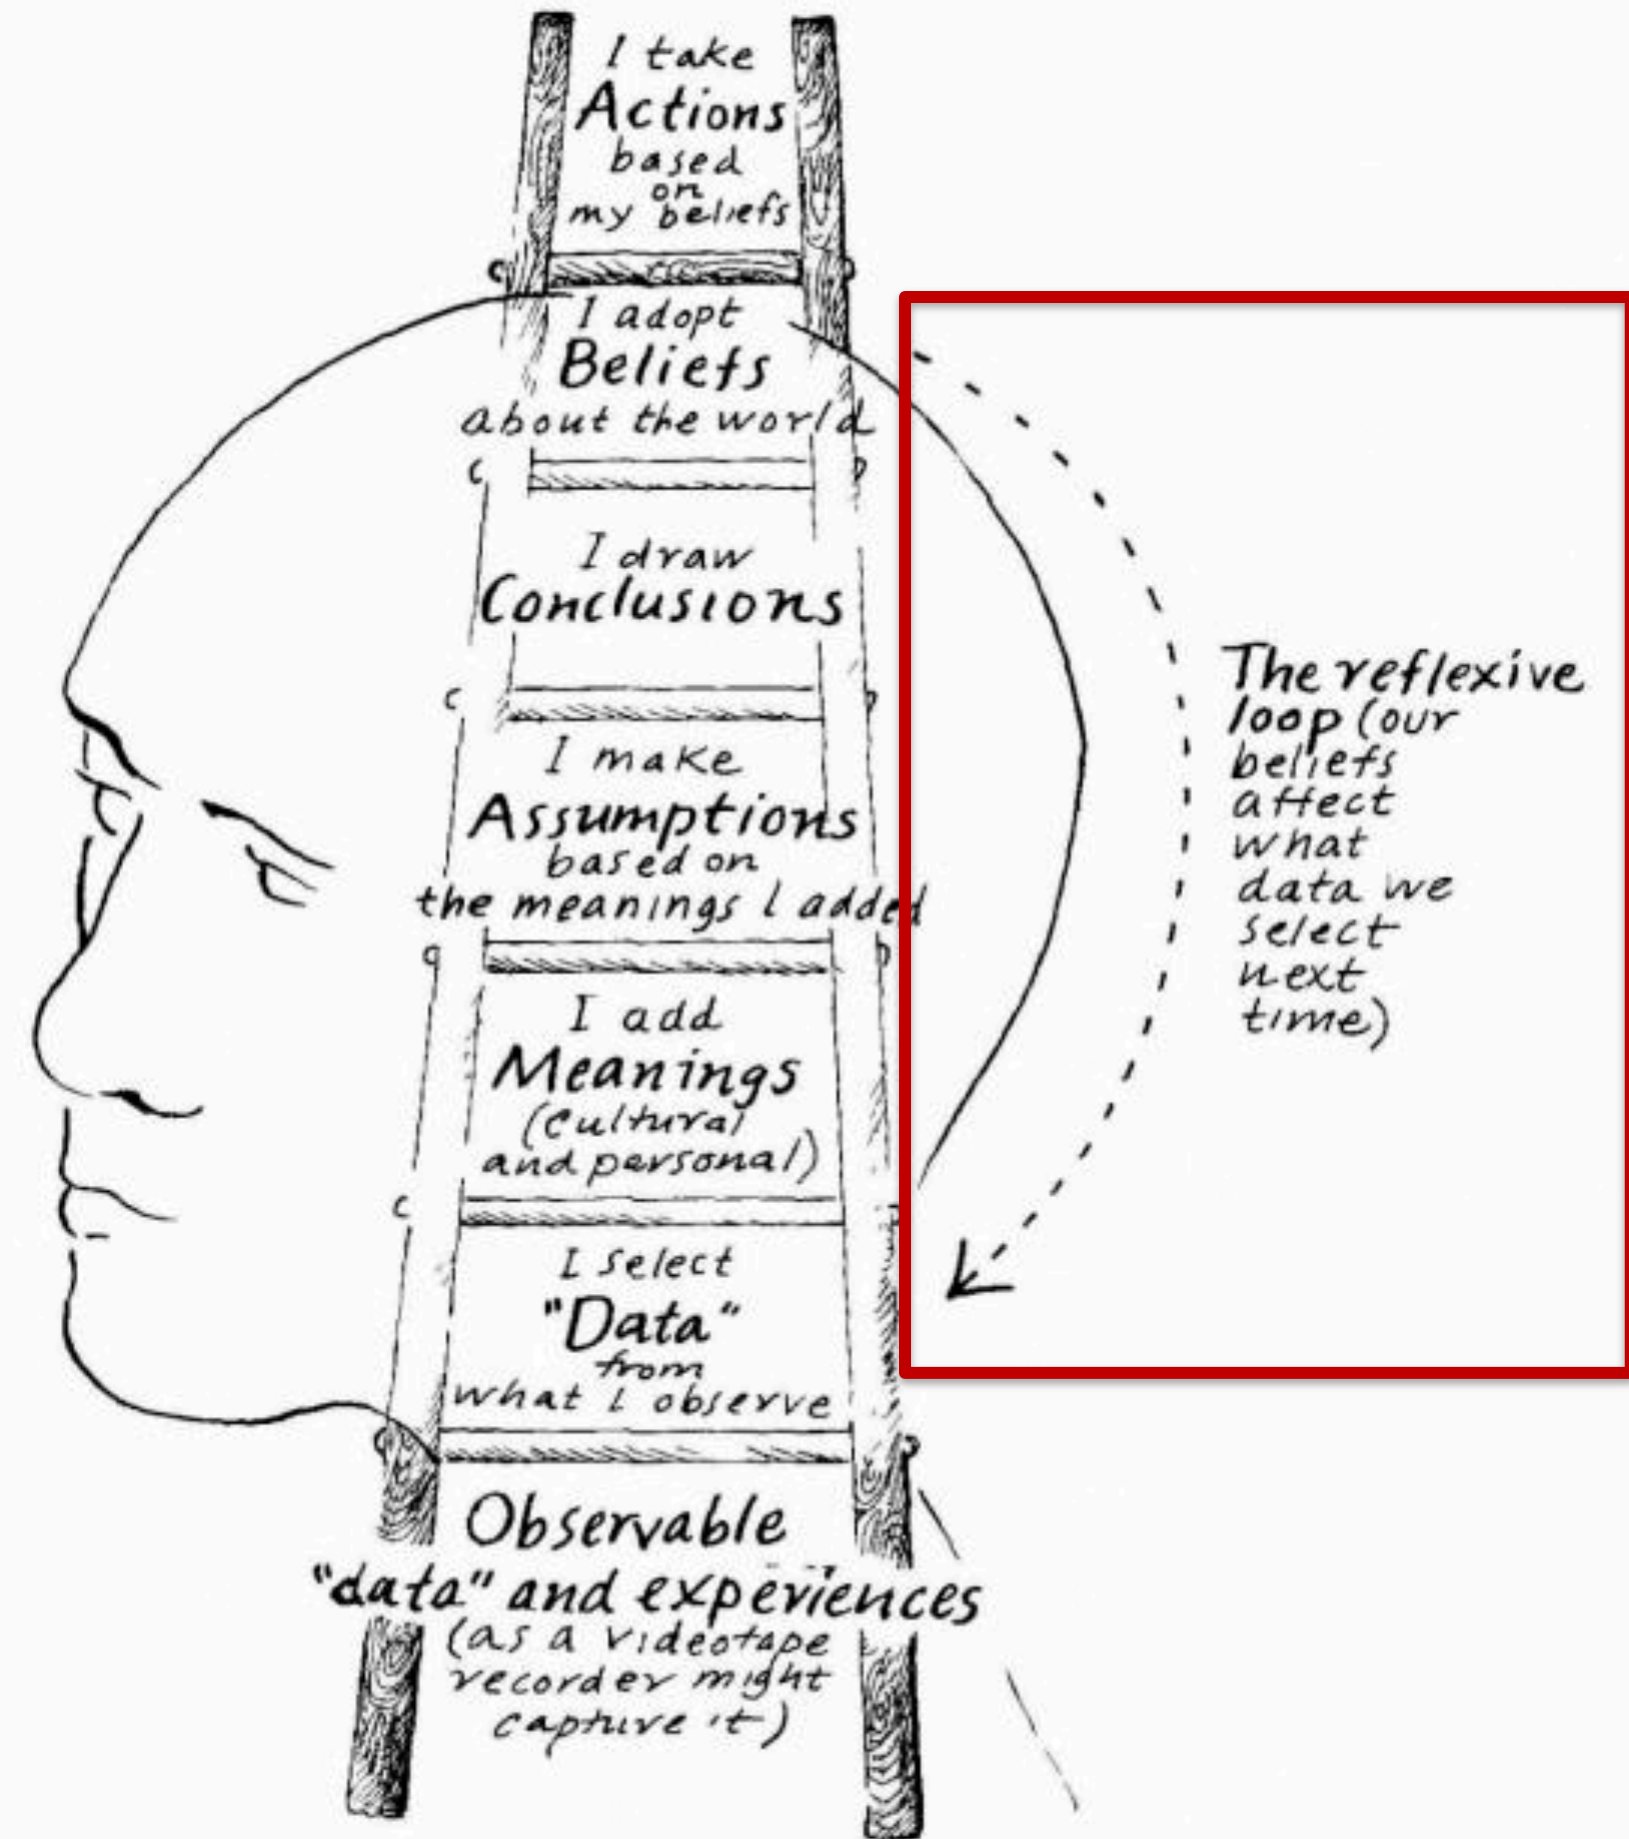 I take
Actions
based
on
my beliefs
I adopt
Beliefs
about the world
I draw
Conclusions
I make
Assumptions
based on
the meanings I added
I add
Meanings
(Cultural
and personal)
I select
"Data"
from
what I observe
Observable
"data" and experiences
(as a videotape
recorder might
capture it)
The reflexive
loop (our
beliefs
affect
what
data we
select
next
time)